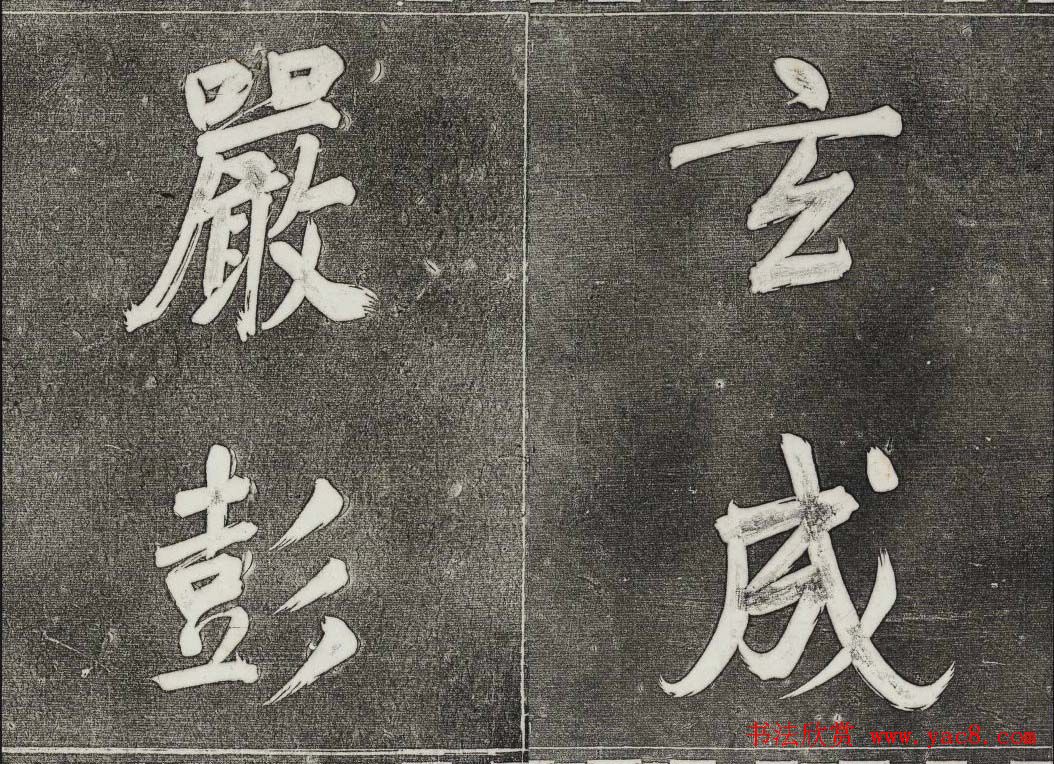 玄成
嚴彭
书法欣赏 www.yac8.com